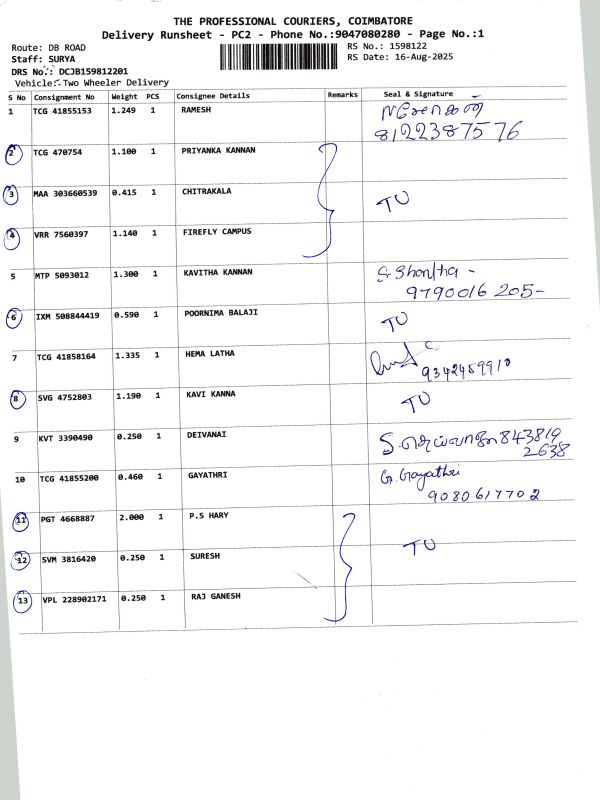 THE PROFESSIONAL COURIERS, COIMBATORE
Delivery Runsheet - PC2 - Phone No.:9047080280 - Page No.:1
Route: DB ROAD RS No.: 1598122
Staff: SURYA RS Date: 16-Aug-2025
DRS No.: DCJB159812201
Vehicle:-Two Wheeler Delivery
S No Consignment No Weight PCS Consignee Details Remarks Seal & Signature
1 TCG 41855153 1.249 1 RAMESH
8122387576
2 TCG 470754 1.100 1 PRIYANKA KANNAN
3 MAA 303660539 0.415 1 CHITRAKALA TU
4 VRR 7560397 1.140 1 FIREFLY CAMPUS
5 MTP 5093012 1.300 1 KAVITHA KANNAN S. Shantha -
9790016 205-
6 IXM 508844419 0.590 1 POORNIMA BALAJI TU
7 TCG 41858164 1.335 1 HEMA LATHA
9342459910
8 SVG 4752803 1.190 1 KAVI KANNA TU
9 KVT 3390490 0.250 1 DEIVANAI 843819
2638
10 TCG 41855200 0.460 1 GAYATHRI G. Gayathri
9080617702
11 PGT 4668887 2.000 1 P.S HARY
12 SVM 3816420 0.250 1 SURESH TU
13 VPL 228902171 0.250 1 RAJ GANESH